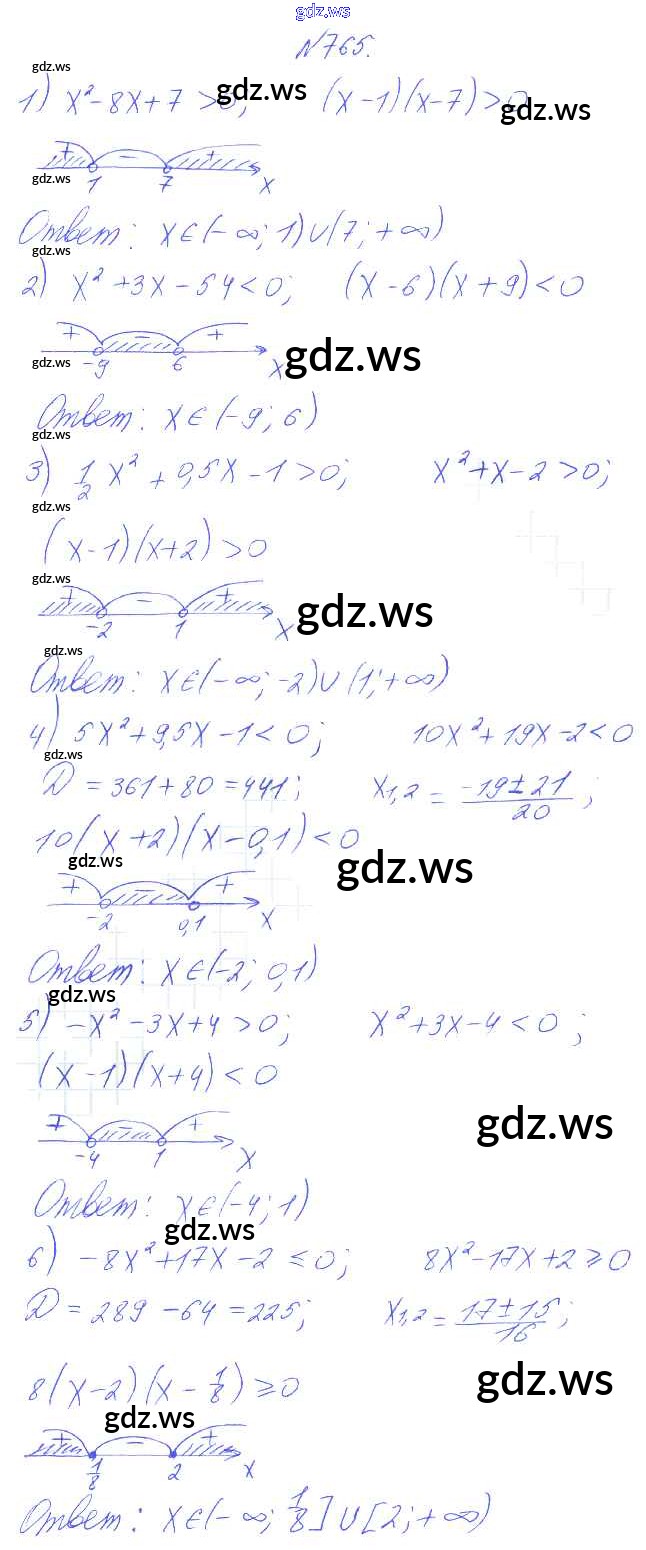 gdz.ws
N765.
gdz.ws
1) x² - 8x + 7 > 0; (x - 1)(x - 7) > 0
gdz.ws gdz.ws
+ − +
gdz.ws 1 7 x
Ответ: x ∈ (-∞; 1) ∪ (7; +∞)
gdz.ws
2) x² + 3x - 54 < 0; (x - 6)(x + 9) < 0
+ − +
gdz.ws -9 6 x gdz.ws
Ответ: x ∈ (-9; 6)
gdz.ws
3) 1/2 x² + 0,5x - 1 > 0; x² + x - 2 > 0;
gdz.ws
(x - 1)(x + 2) > 0
gdz.ws
+ − +
-2 1 x gdz.ws
gdz.ws
Ответ: x ∈ (-∞; -2) ∪ (1; +∞)
4) 5x² + 9,5x - 1 < 0; 10x² + 19x - 2 < 0
gdz.ws
D = 361 + 80 = 441; x1,2 = (-19 ± 21)/20;
10(x + 2)(x - 0,1) < 0
gdz.ws gdz.ws
+ − +
-2 0,1 x
Ответ: x ∈ (-2; 0,1)
gdz.ws
5) -x² - 3x + 4 > 0; x² + 3x - 4 < 0;
(x - 1)(x + 4) < 0
+ − +
-4 1 x gdz.ws
Ответ: x ∈ (-4; 1)
gdz.ws
6) -8x² + 17x - 2 ≤ 0; 8x² - 17x + 2 ≥ 0
D = 289 - 64 = 225; x1,2 = (17 ± 15)/16;
8(x - 2)(x - 1/8) ≥ 0 gdz.ws
gdz.ws
+ − +
1/8 2 x
Ответ: x ∈ (-∞; 1/8] ∪ [2; +∞)